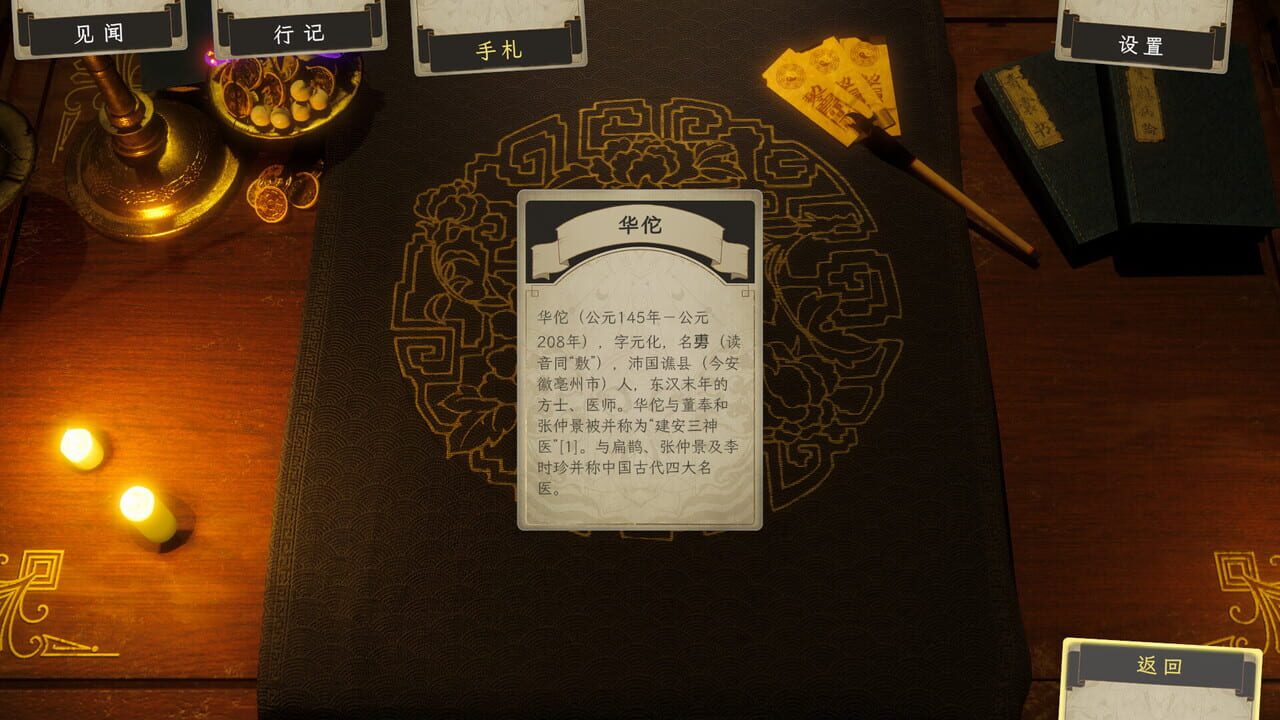 见闻
行记
手札
设置
华佗
华佗（公元145年－公元
208年），字元化，名旉（读
音同“敷”），沛国谯县（今安
徽亳州市）人，东汉末年的
方士、医师。华佗与董奉和
张仲景被并称为“建安三神
医”[1]。与扁鹊、张仲景及李
时珍并称中国古代四大名
医。
返回